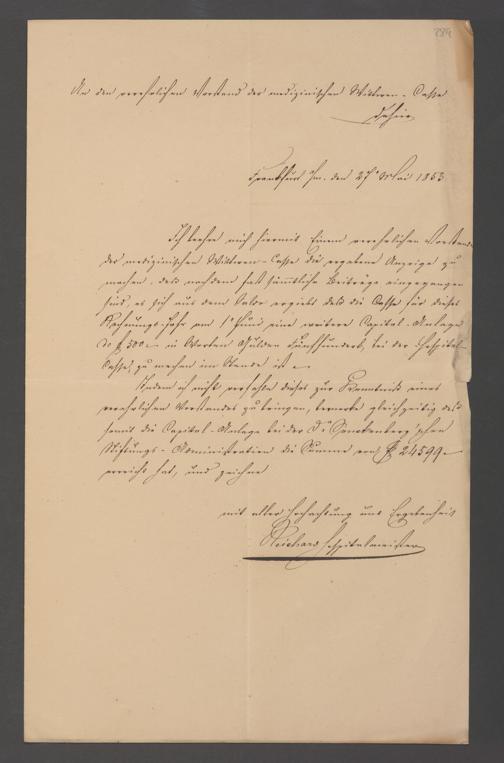 289
An den verehrlichen Vorstand der medizinischen Wittwen-Casse
dahier
Frankfurt a/m. den 27' Mai 1853
Ich beehre mich hiermit Einem verehrlichen Vorstande
der medizinischen Wittwen-Casse die ergebene Anzeige zu
machen, daß nachdem fast sämmtliche Beiträge eingegangen
sind, es sich aus dem Saldo ergiebt daß die Casse für dieses
Rechnungs-Jahr am 1' Juni eine weitere Capital-Anlage
f 500 in Worten Gulden Fünfhundert, bei der Hospital
Casse, zu machen im Stande ist
Indem ich nicht verfehle dieses zur Kenntniß eines
verehrlichen Vorstandes zu bringen, bemerke gleichzeitig daß
somit die Capital-Anlage bei der Dr Senckenberg'schen
Stiftungs-Administration die Summe von f 24599
erreicht hat, und zeichne
mit aller Hochachtung und Ergebenheit
Reichard Hospitalmeister